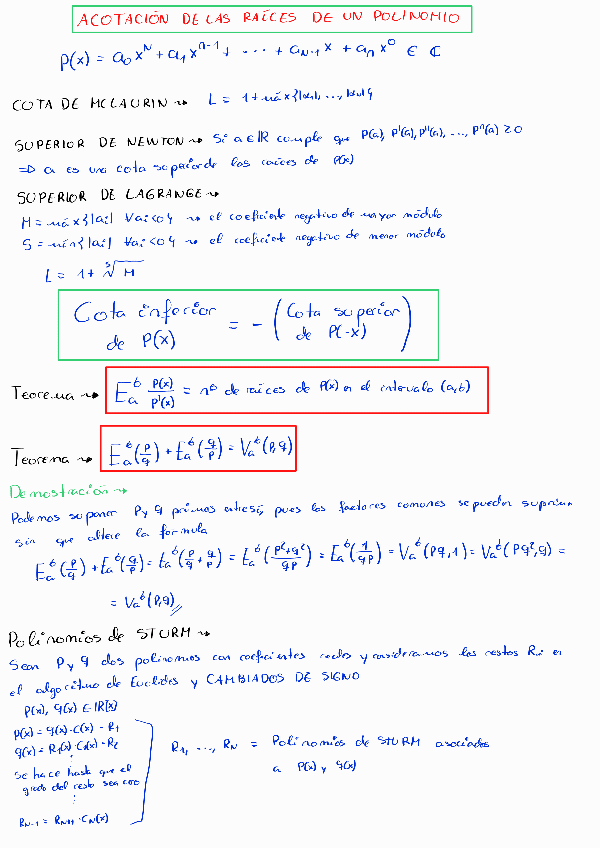 ACOTACIÓN DE LAS RAÍCES DE UN POLINOMIO
P(x) = a₀xⁿ + a₁xⁿ⁻¹ + ... + aₙ₋₁x + aₙx⁰ ∈ ℂ
COTA DE MCLAURIN ⇝ L = 1 + máx{|a₁|, ..., |aₙ|}
SUPERIOR DE NEWTON ⇝ Si a ∈ ℝ cumple que P(a), P'(a), P''(a), ..., Pⁿ(a) ≥ 0
⇒ a es una cota superior de las raíces de P(x)
SUPERIOR DE LAGRANGE ⇝
M = máx{|ai| ∀ai<0} ⇝ el coeficiente negativo de mayor módulo
S = mín{|ai| ∀ai<0} ⇝ el coeficiente negativo de menor módulo
L = 1 + ˢ√M
Cota inferior de P(x) = - (Cota superior de P(-x))
Teorema ⇝ Eₐᵇ P(x)/P'(x) = nº de raíces de P(x) en el intervalo (a,b)
Teorema ⇝ Eₐᵇ(P/q) + Eₐᵇ(q/P) = Vₐᵇ(P,q)
Demostración ⇝
Podemos suponer P y q primos entre sí, pues los factores comunes se pueden suprimir
sin que altere la formula
Eₐᵇ(P/q) + Eₐᵇ(q/P) = Eₐᵇ(P/q + q/P) = Eₐᵇ((P²+q²)/qP) = Eₐᵇ(1/qP) = Vₐᵇ(Pq,1) = Vₐᵇ(Pq²,q) =
= Vₐᵇ(P,q)
Polinomios de STURM ⇝
Sean P y q dos polinomios con coeficientes reales y consideramos los restos Ri en
el algoritmo de Euclides y CAMBIADOS DE SIGNO
P(x), q(x) ∈ ℝ[x]
P(x) = q(x)·C(x) - R₁
q(x) = R₁(x)·C₁(x) - R₂
⋮
se hace hasta que el
grado del resto sea cero
⋮
Rₙ₋₁ = Rₙ₊₁·Cₙ(x)
R₁, ..., Rₙ = Polinomios de STURM asociados
a P(x) y q(x)